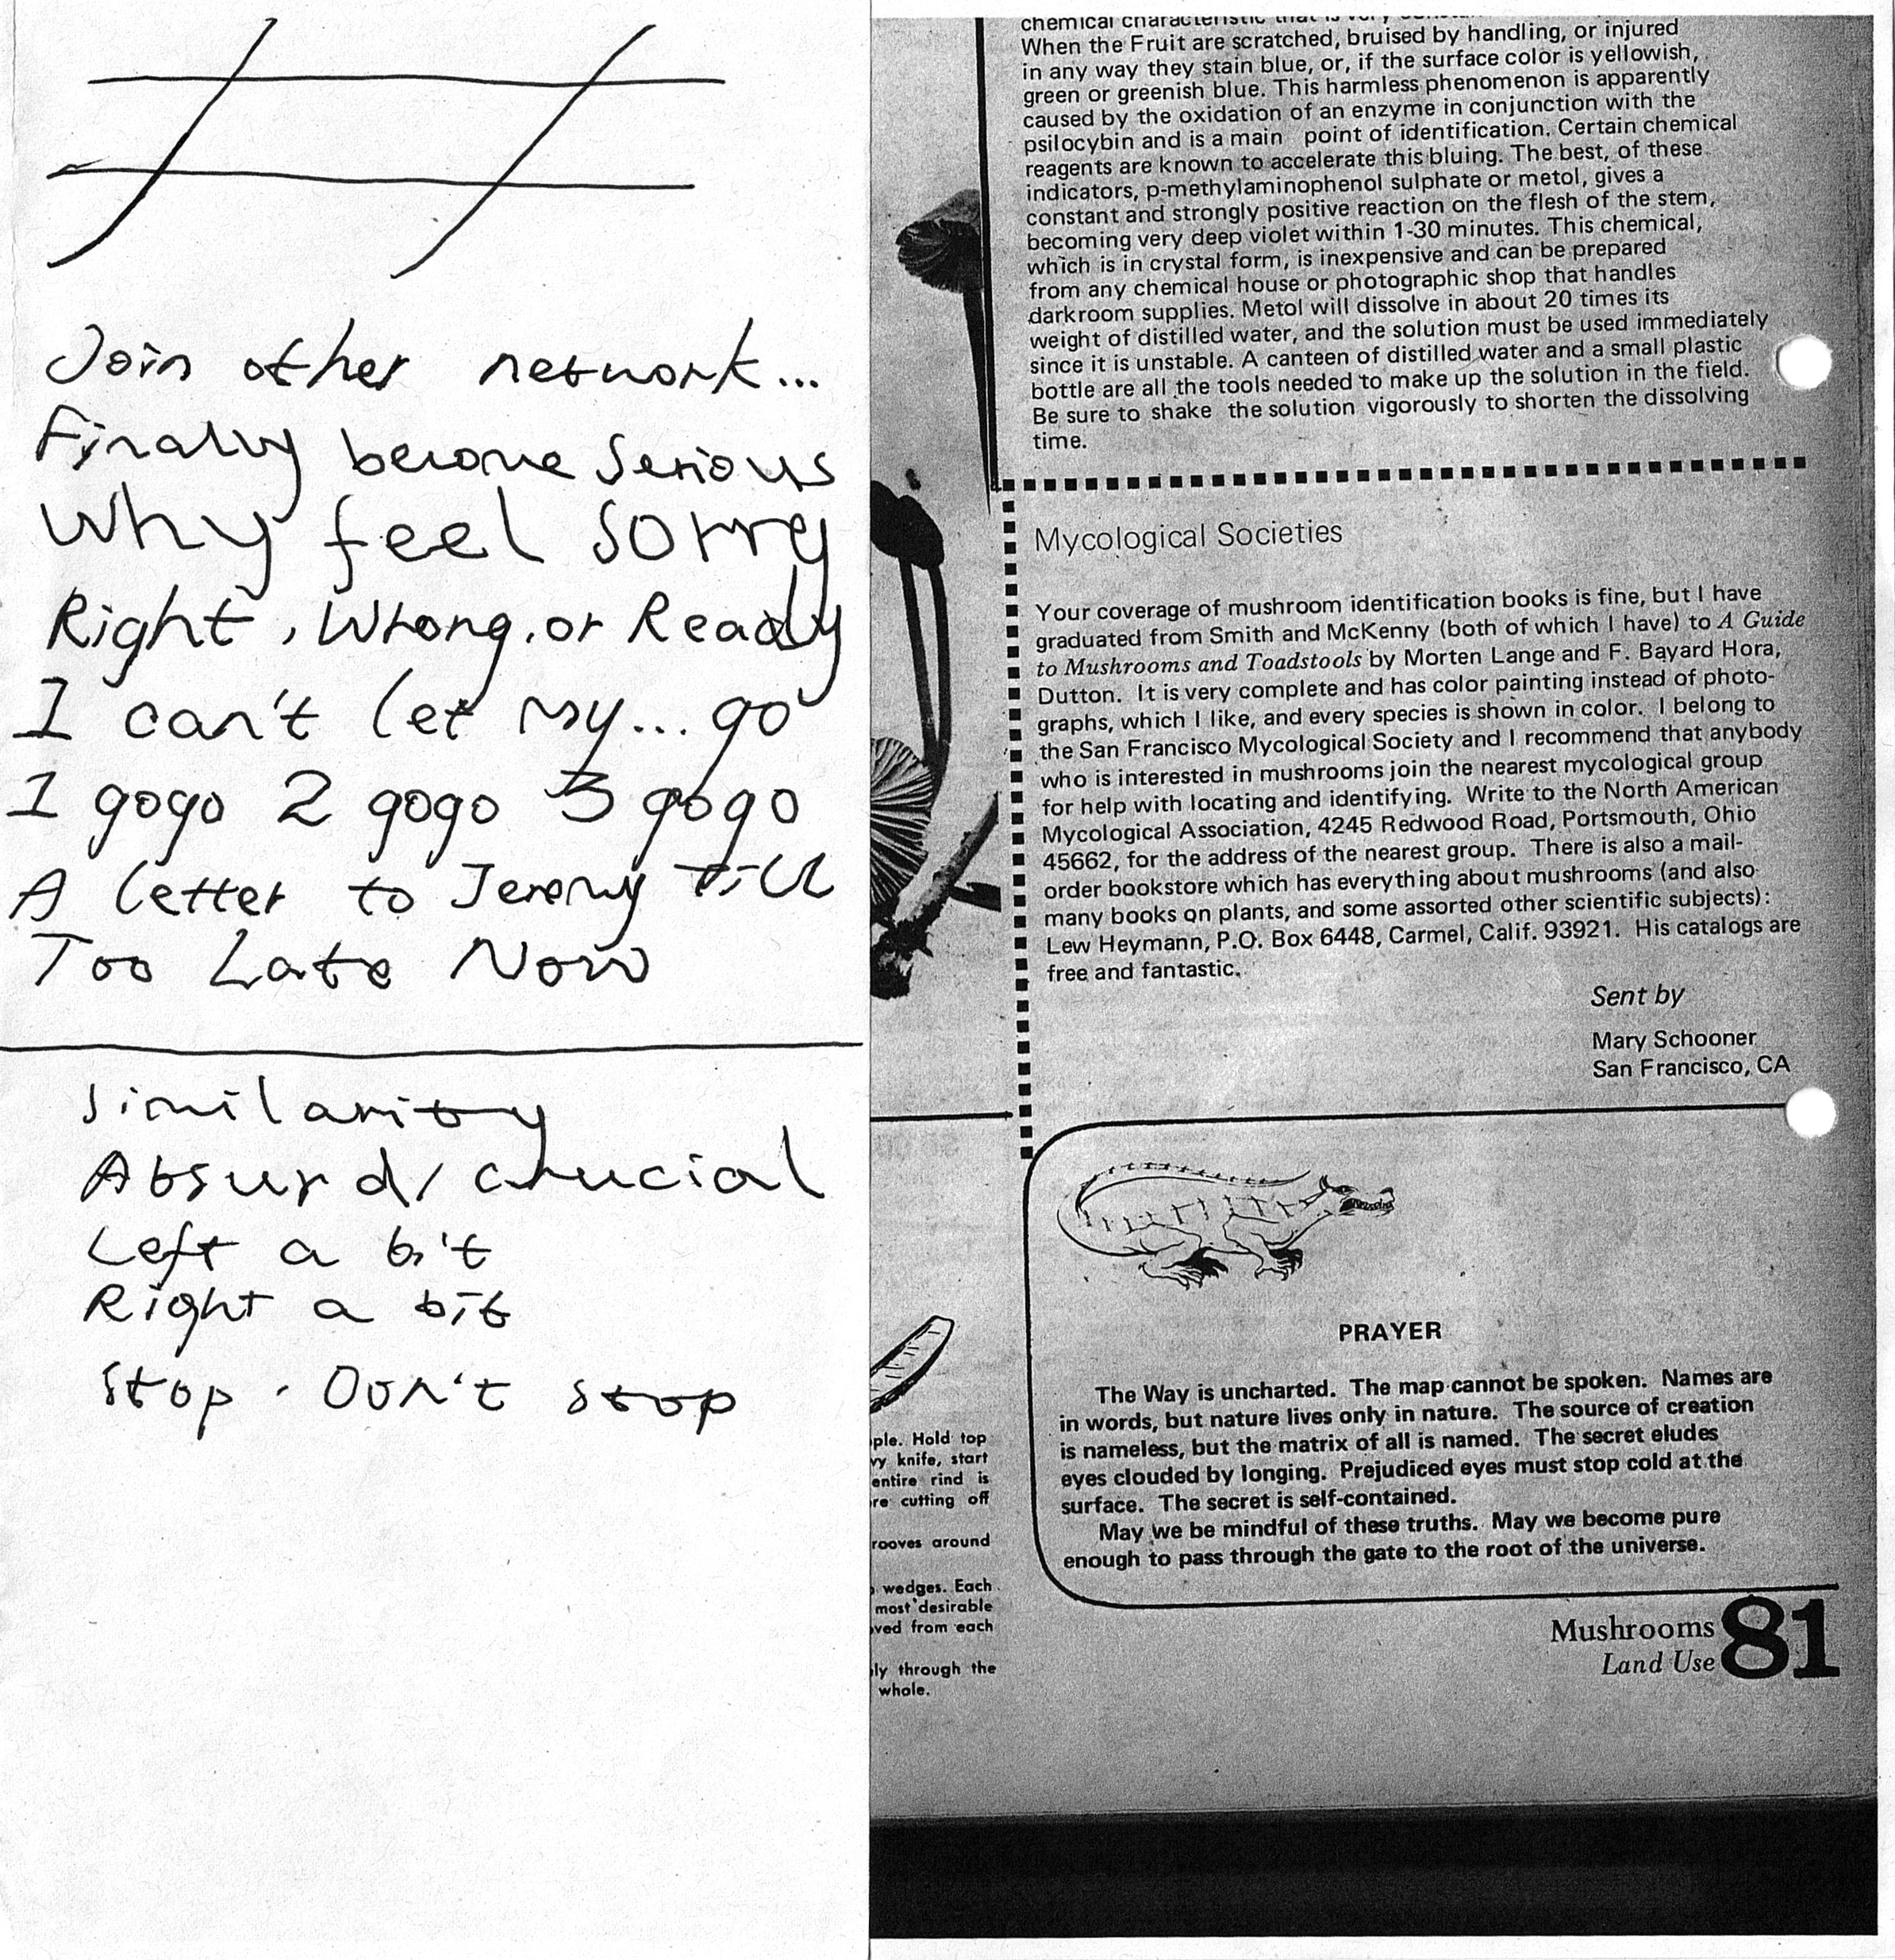 Join other network...
Finally become Serious
Why feel sorry
Right, Wrong, or Ready
I can't let my... go
1 gogo 2 gogo 3 gogo
A letter to Jeremy Till
Too Late Now
Similarity
Absurd / crucial
Left a bit
Right a bit
Stop. Don't stop
chemical characteristic that is very
When the Fruit are scratched, bruised by handling, or injured
in any way they stain blue, or, if the surface color is yellowish,
green or greenish blue. This harmless phenomenon is apparently
caused by the oxidation of an enzyme in conjunction with the
psilocybin and is a main point of identification. Certain chemical
reagents are known to accelerate this bluing. The best, of these
indicators, p-methylaminophenol sulphate or metol, gives a
constant and strongly positive reaction on the flesh of the stem,
becoming very deep violet within 1-30 minutes. This chemical,
which is in crystal form, is inexpensive and can be prepared
from any chemical house or photographic shop that handles
darkroom supplies. Metol will dissolve in about 20 times its
weight of distilled water, and the solution must be used immediately
since it is unstable. A canteen of distilled water and a small plastic
bottle are all the tools needed to make up the solution in the field.
Be sure to shake the solution vigorously to shorten the dissolving
time.
Mycological Societies
Your coverage of mushroom identification books is fine, but I have
graduated from Smith and McKenny (both of which I have) to A Guide
to Mushrooms and Toadstools by Morten Lange and F. Bayard Hora,
Dutton. It is very complete and has color painting instead of photo-
graphs, which I like, and every species is shown in color. I belong to
the San Francisco Mycological Society and I recommend that anybody
who is interested in mushrooms join the nearest mycological group
for help with locating and identifying. Write to the North American
Mycological Association, 4245 Redwood Road, Portsmouth, Ohio
45662, for the address of the nearest group. There is also a mail-
order bookstore which has everything about mushrooms (and also
many books on plants, and some assorted other scientific subjects):
Lew Heymann, P.O. Box 6448, Carmel, Calif. 93921. His catalogs are
free and fantastic.
Sent by
Mary Schooner
San Francisco, CA
ple. Hold top
vy knife, start
entire rind is
re cutting off
rooves around
wedges. Each
most desirable
oved from each
ly through the
whole.
PRAYER
The Way is uncharted. The map cannot be spoken. Names are
in words, but nature lives only in nature. The source of creation
is nameless, but the matrix of all is named. The secret eludes
eyes clouded by longing. Prejudiced eyes must stop cold at the
surface. The secret is self-contained.
May we be mindful of these truths. May we become pure
enough to pass through the gate to the root of the universe.
Mushrooms
Land Use
81